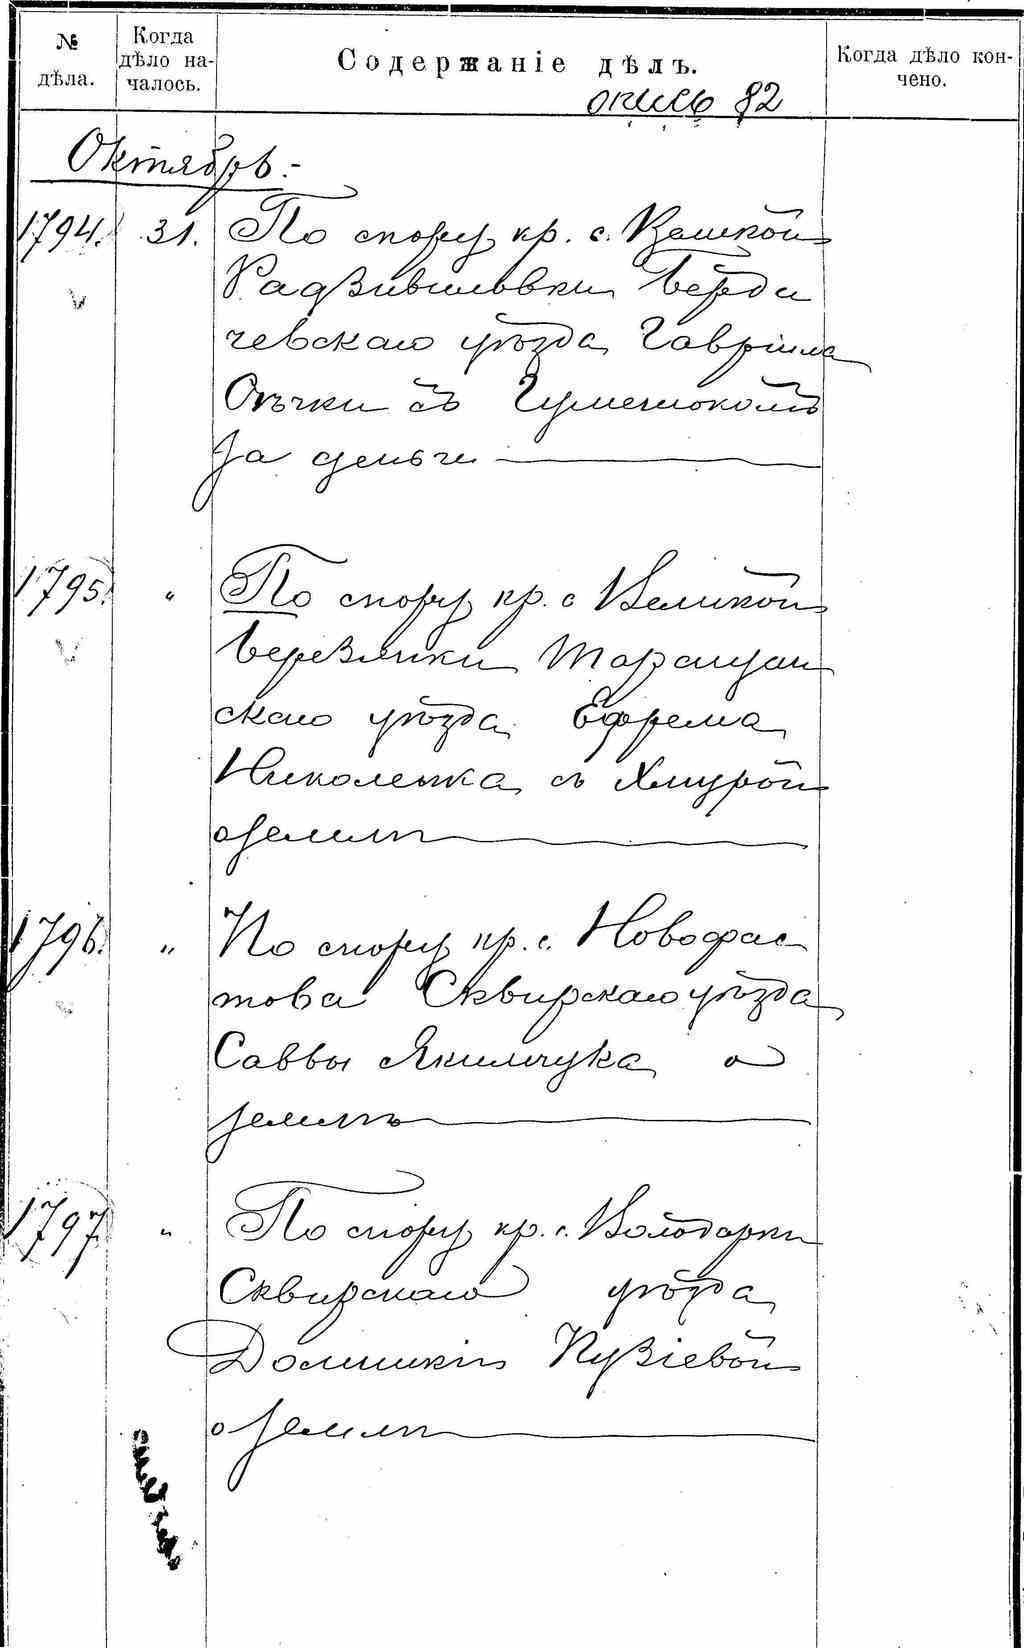 № дѣла.
Когда дѣло на-
чалось.
Содержаніе дѣлъ.
Когда дѣло кон-
чено.
опись 82
Октябрь.-
1794. 31. По спору кр. с. Великой
Радзивиловки Берди
чевскаго уѣзда Гавріила
Сѣчки съ Гуменюкомъ
за деньги
1795. " По спору кр. с Великой
Березянки Таращан
скаго уѣзда Ефрема
Николенка съ Хмурой
о землѣ
1796. " По спору кр. с. Новофас
това Сквирскаго уѣзда
Саввы Якимчука о
землѣ
1797. " По спору кр. с. Володарки
Сквирскаго уѣзда
Домникіи Кузіевой
о землѣ